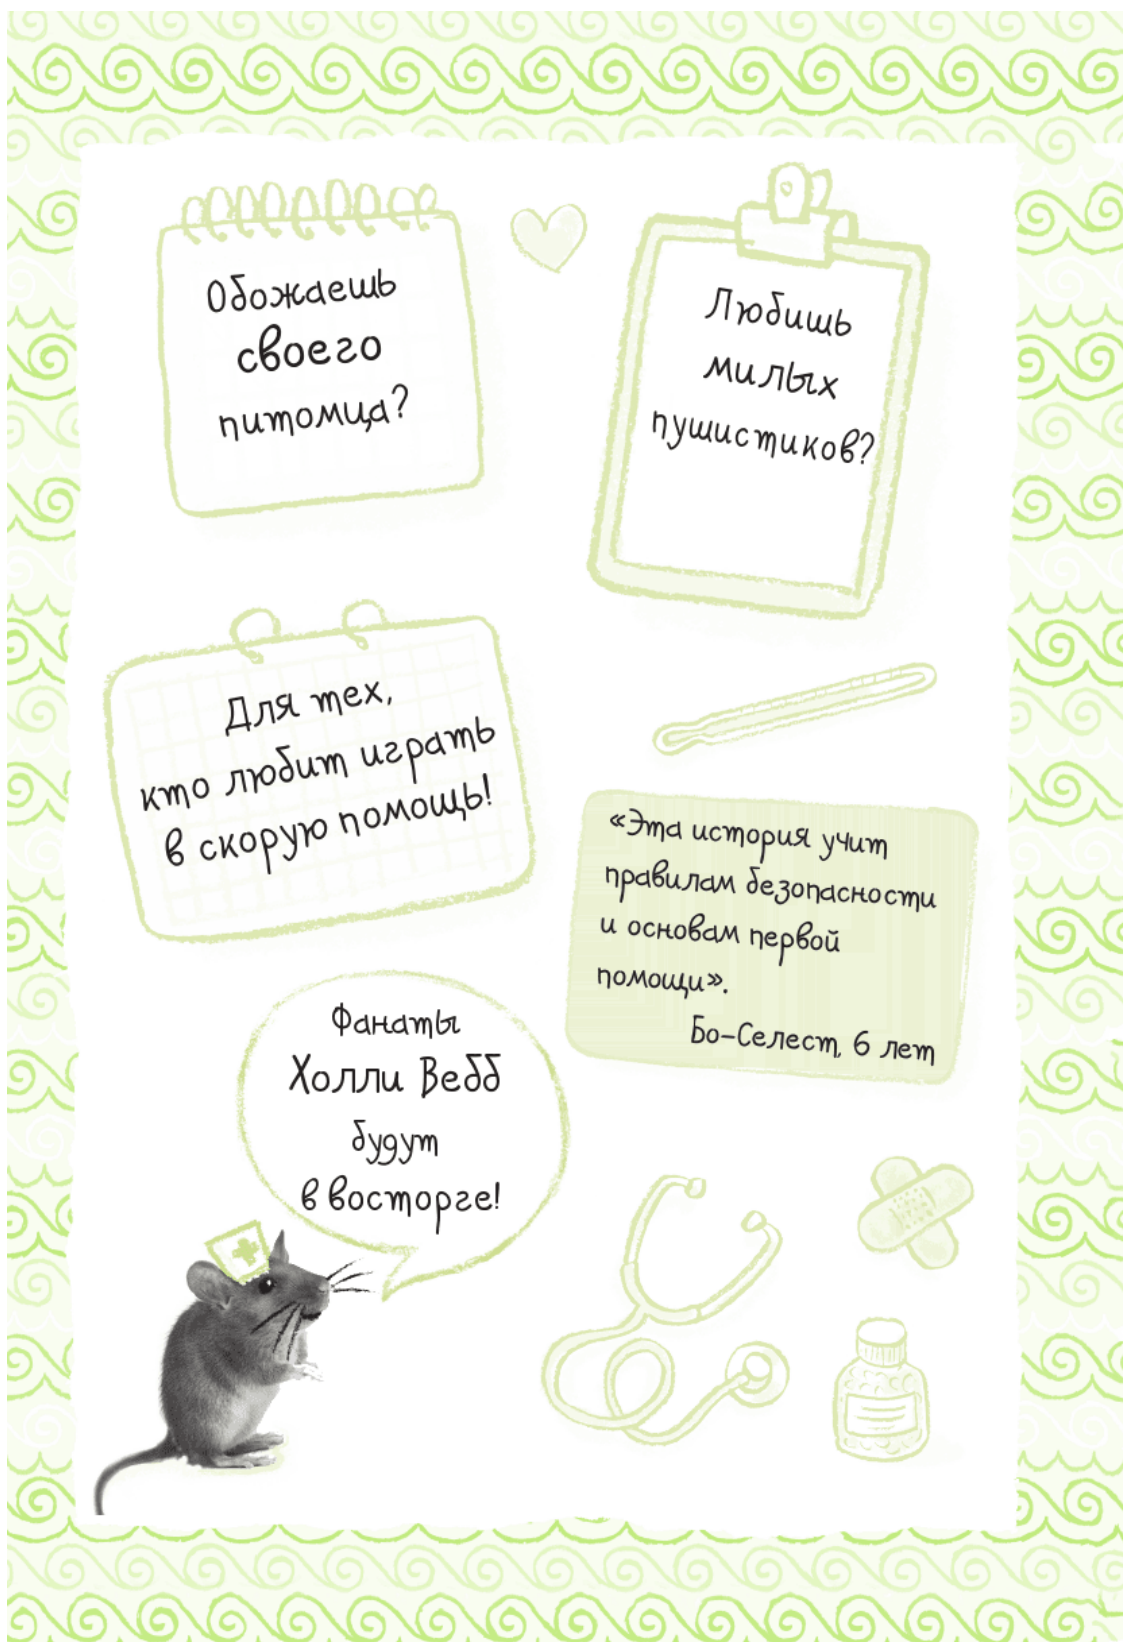 Обожаешь
своего
питомца?
Любишь
милых
пушистиков?
Для тех,
кто любит играть
в скорую помощь!
«Эта история учит
правилам безопасности
и основам первой
помощи».
Бо-Селест, 6 лет
Фанаты
Холли Вебб
будут
в восторге!